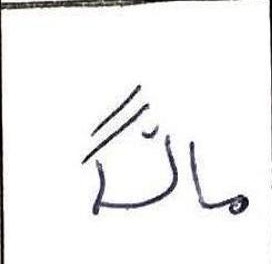 مانگ